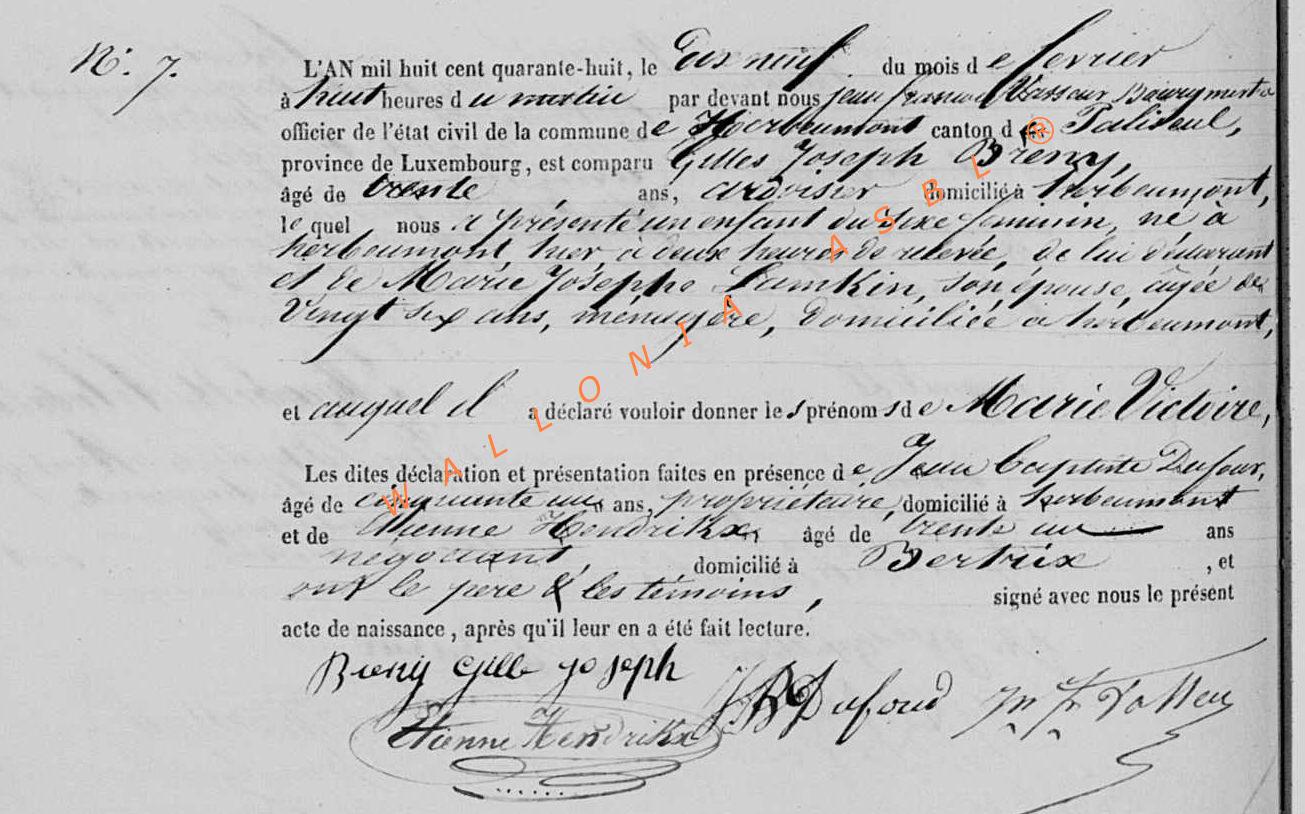 N°. 7.
L'AN mil huit cent quarante-huit, le dix neuf du mois de fevrier
à huit heures du matin par devant nous jean françois Bourgmestre
officier de l'état civil de la commune de Herbeumont canton de Paliseul,
province de Luxembourg, est comparu Gilles Joseph Breny,
âgé de trente ans, ardoisier domicilié à herbeumont,
le quel nous a présenté un enfant du sexe feminin, né à
herbeumont, hier à deux heures de relevée, de lui déclarant
et de Marie Josephe Lamkin, son épouse, agée de
Vingt six ans, ménagère, domiciliée à herbeumont,
et auquel il a déclaré vouloir donner les prénoms de Marie Victoire,
Les dites déclaration et présentation faites en présence de Jean baptiste Dufour,
âgé de cinquante un ans, propriétaire, domicilié à herbeumont
et de Etienne Hendrikx, âgé de trente un ans
négociant, domicilié à Bertrix, et
ont le pere & les témoins, signé avec nous le présent
acte de naissance, après qu'il leur en a été fait lecture.
Breny Gille joseph
JB Dufour
Etienne Hendrikx
WALLONIA ASBL ®